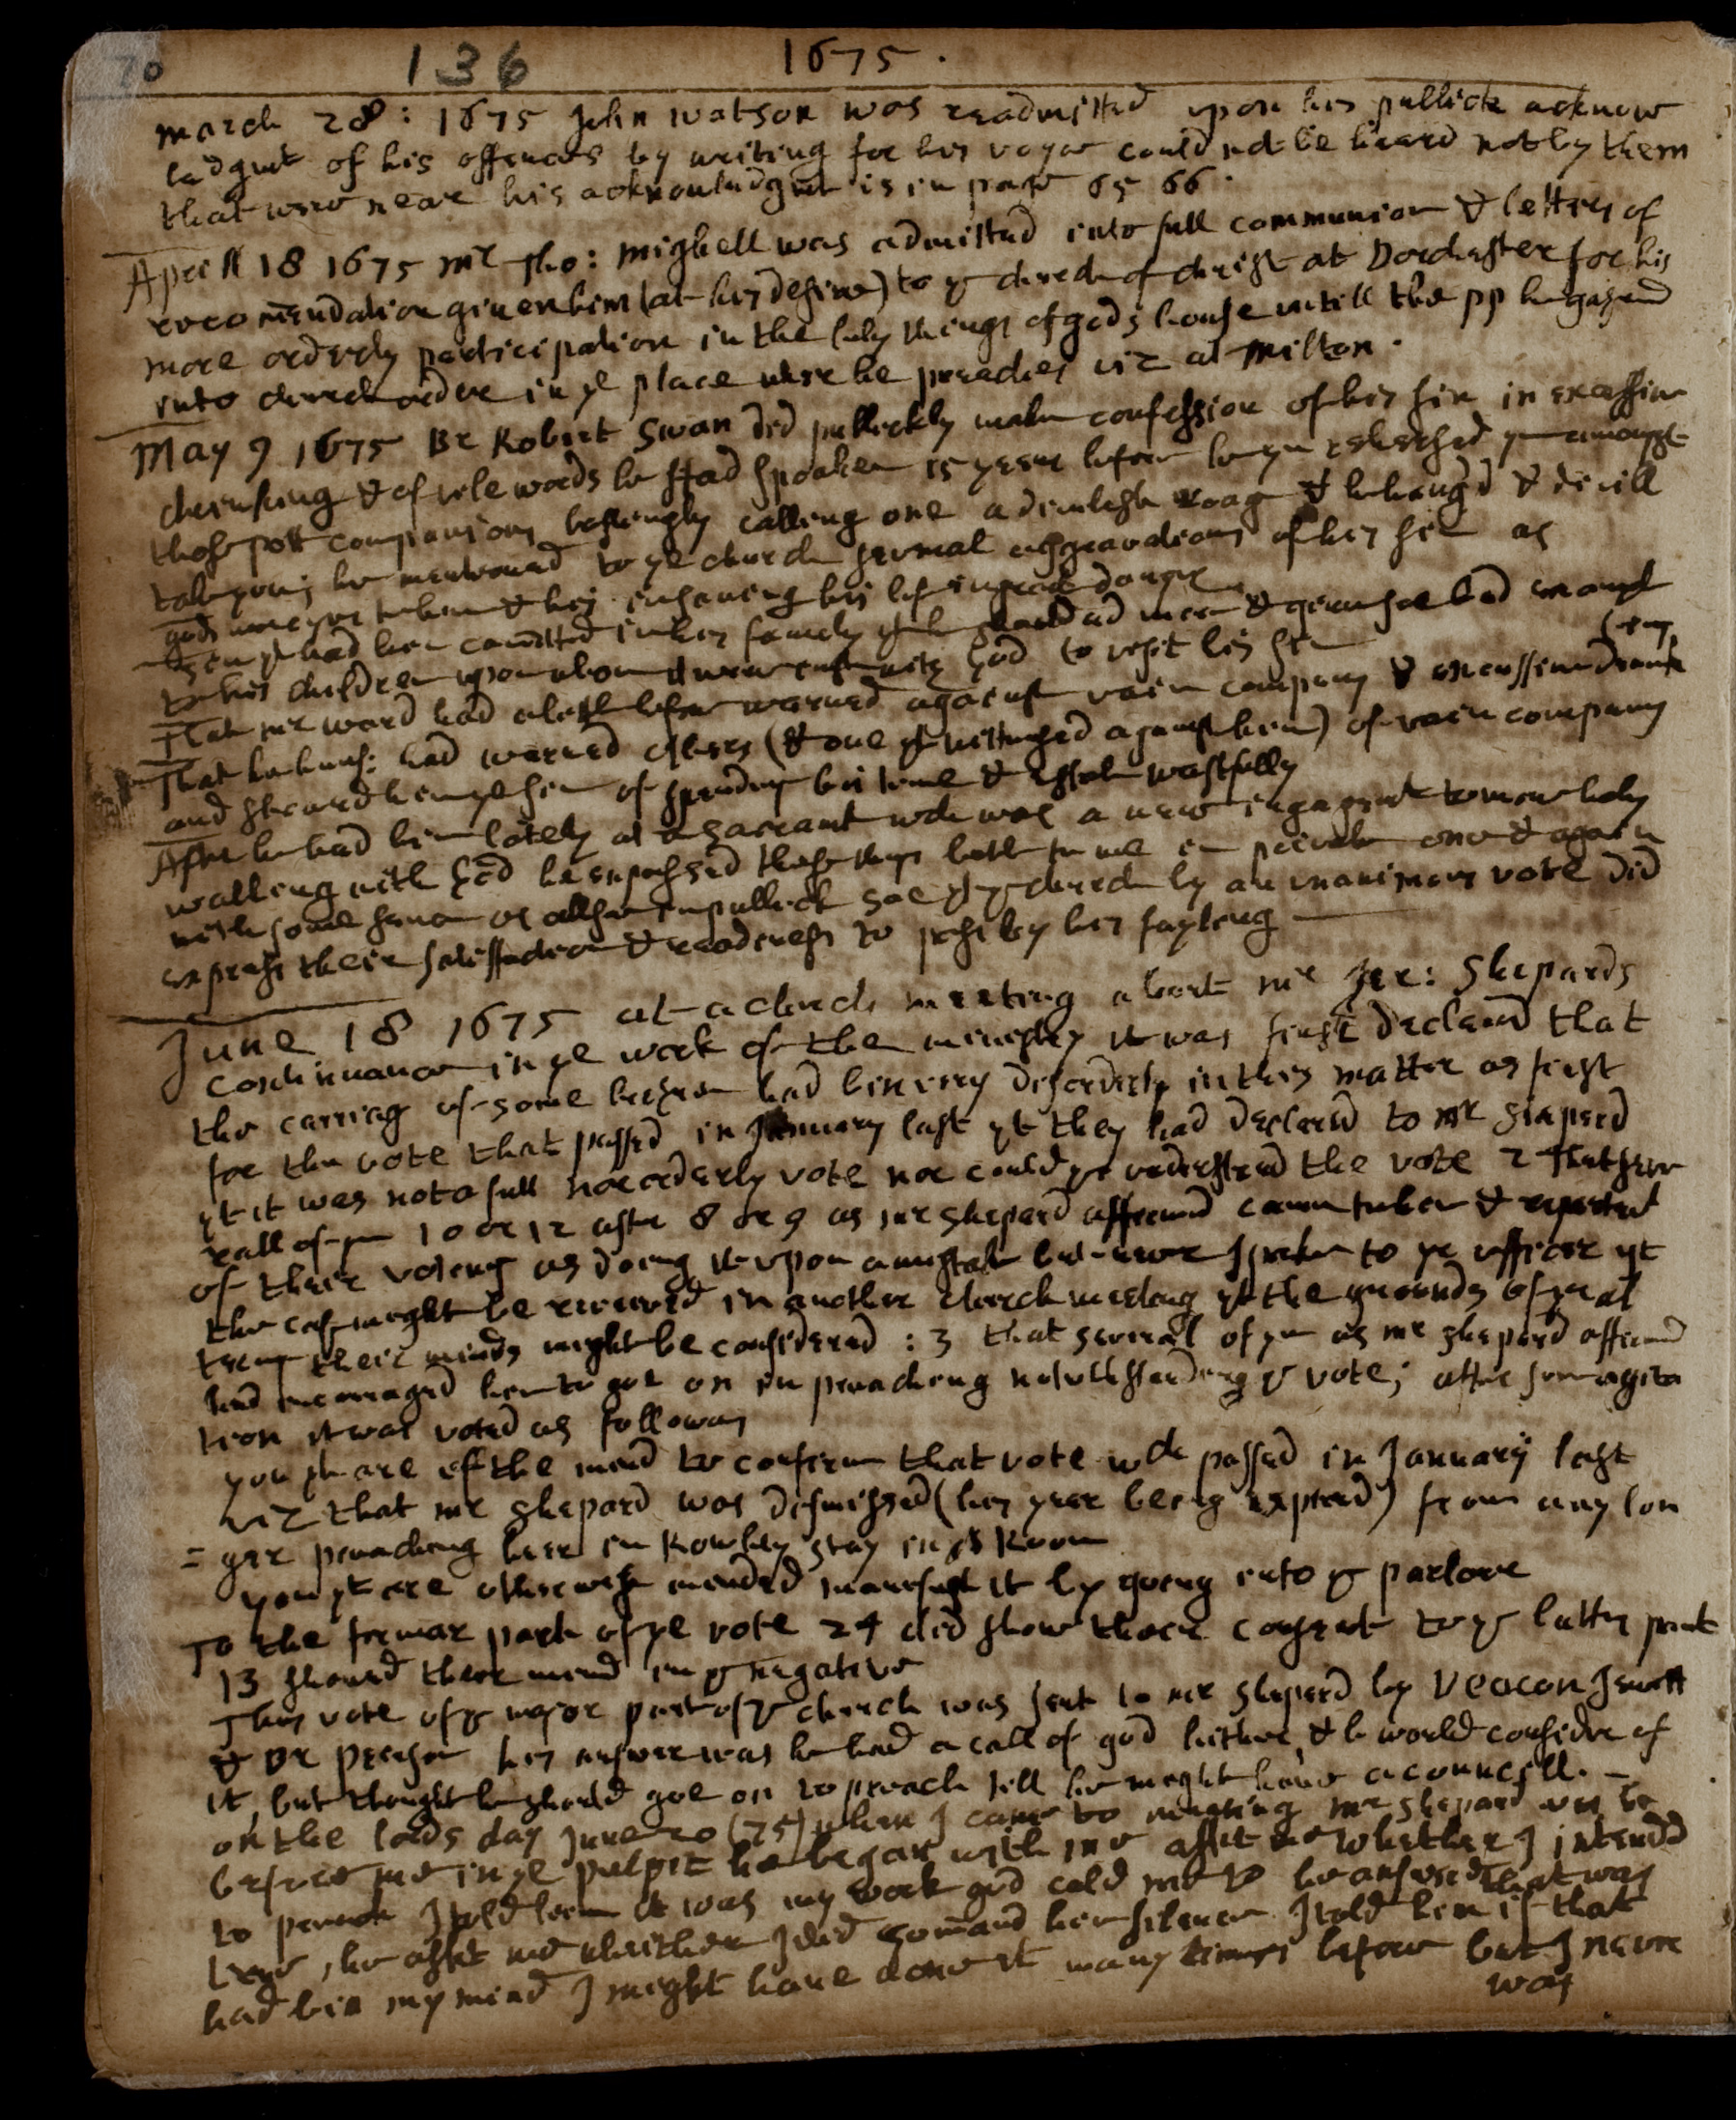 70 136 1675.
march 28: 1675 John watson was readmitted upon his publick acknow
ledgmt of his offences by writing for his voyce could not be heard not by them
that were neare his acknowledgmt is in page 65 66.
Aprill 18 1675 mr Tho: mighell was admitted into full communion & letters of
recomendation given him (at his desire) to ye church of christ at Dorchester for his
more orderly participation in the holy things of gods house untill the pp be gathered
into church order in ye place where he preaches viz at milton.
May 9 1675 Br Robert Swan did publickly make confession of his sin in excessive
drinking & of vile words he had spoken 15 yeare before
those pott companions calling one a divelish roag & be hang'd & divill
take you; he mentioned to ye church severall aggravations of his sin as
gods mercyes to him & his
yt had ben comitted in his family yt he
to his children upon whom god to visit his sin
That mr ward had oft before warned against vain company & excessive drink
(ing
That he hims: had warned others (& one yt witnessed against him) of vain company
and the sin of spending his time & estate wastfully
After he had bin lately at a sacramt wch was a new ingagemt to more holy
walking with God he expressed these things both to me in private once & again
with some sence as allso in publick soe yt ye church by an unanimous vote did
express their satisfaction & readiness to pass by his fayling
June 18 1675 at a church meeting about mr Jer: Shepards
continuance in ye work of the ministry it was first declared that
the carriag of some brethren had bin very disorderly in this matter as first
for the vote that passed in January last yt they had declared to mr Shepard
yt it was not a full nor orderly vote nor could ye understand the vote 2 That
call of ym 10 or 12 after 8 or 9 as mr shepard affirmed came to him & repented
of their voting as doing it upon a mistake but never spake to ye officer yt
the case might be reviewed in another church meeting yt the grounds of
their minds might be considered: 3 that severall of ym as mr shepard affirmed
had incorraged him to goe on in preaching notwithstanding ye vote; after some agita
tion it was voted as followes
you yt are of the mind to confirm that vote wch passed in January last
viz that mr shepard was dismissed (his year being expired) from any lon
= ger preaching here in Rowley stay in ys Room
you yt are otherwise minded manifest it by going into ye parlore
To the former part of ye vote 24 did show there consent to ye latter part
13 shewed there mind in ye negative
This vote of ye major part of ye church was sent to mr shepard by Deacon Jewett
& Br Pearson his answer was he had a call of god hither, & he would consider of
it, but thought he should goe on to preach till he might have a councill. –
on the lords day June 20 (75) when I came to meeting mr shepard was be
before me in ye pulpit he began with me askt me whether I intended
to preach I told him it was my work god cald me to he answered that was
his, he askt me whether I did comand him silence I told him if that
had bin my mind I might have done it many times before but I never
was